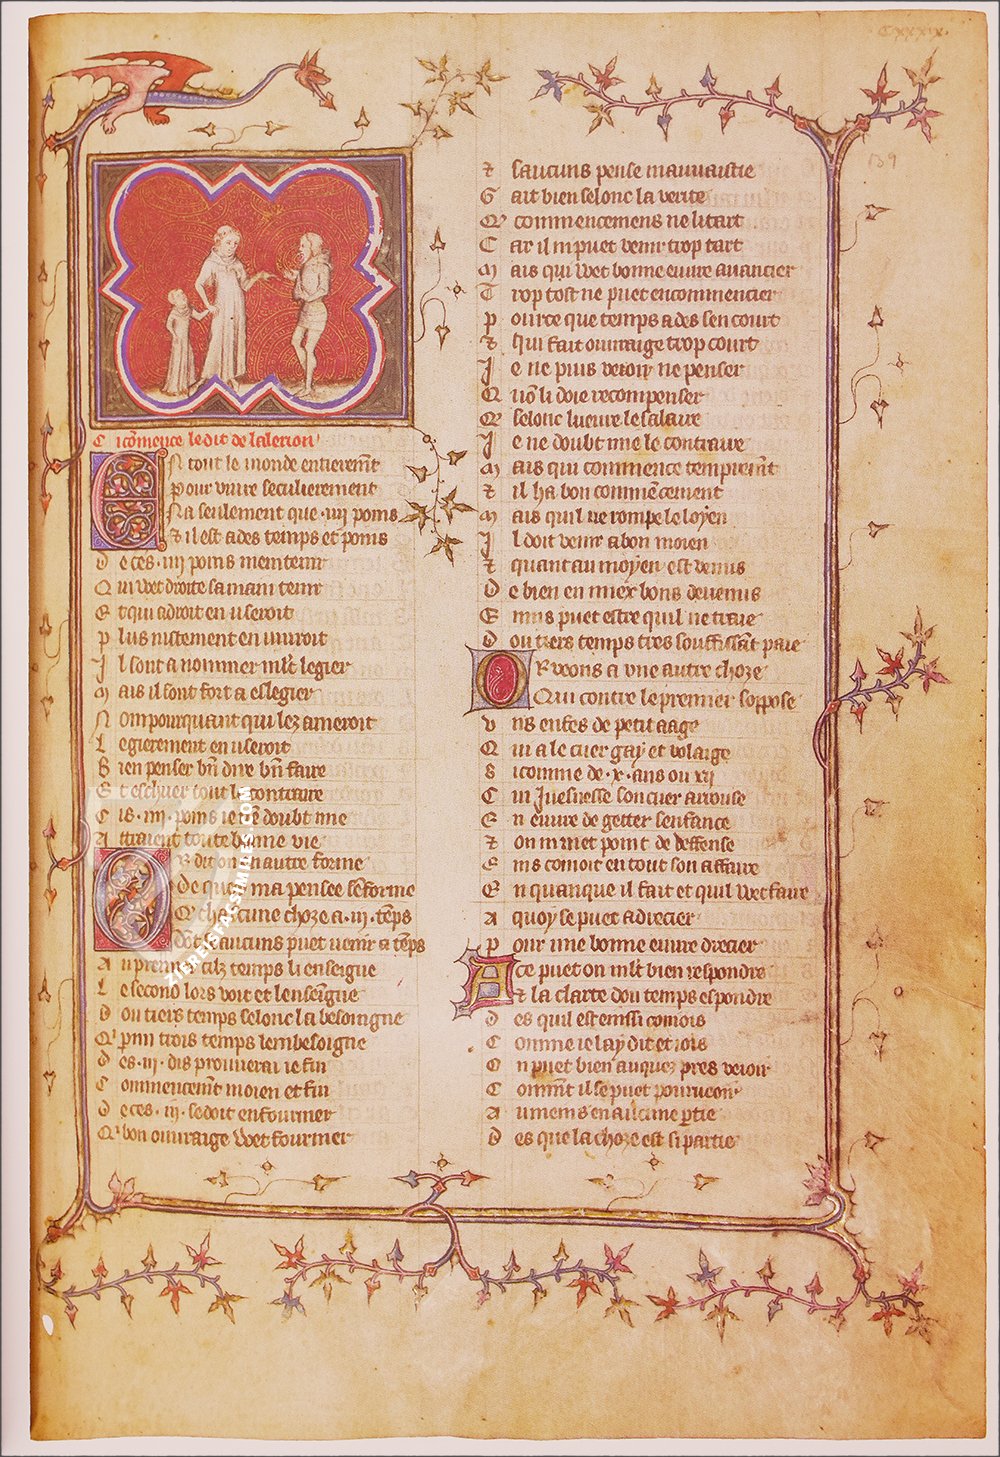 CXXXIX.
139
Ci cōmence le dit de lalerion
En tout le monde entieremt̄
Pour viure seculierement
Na seulement que .iiij. poins
Et il est a des temps et poins
De ces .iiij. poins maintenir
Qui wet droite sa main tenir
Et qui a droit en vseroit
Plus iustement en viuroit
Il sont a nommer ml̄t legier
Mais il sont fort a eslegier
Nompourquant qui lez ameroit
Legierement en vseroit
Bien penser bn̄ dire bn̄ faire
Et eschuer tout le contraire
Cis .iiij. poins ie nē doubt mie
Attraient toute bonne vie
Or dit on en autre forme
De quoi ma pensee se forme
Q' chascune choze a .iij. tēps
Dōt se aucuns puet venir a tēps
Au premier cilz temps li enseigne
Le second lors voit et lenseigne
Dou tiers temps selonc la besoingne
Q' par mi trois temps lembesoigne
Des .iij. dis prouuerai ie fin
Commencemt̄ moien et fin
De ces .iij. se doit enfourmer
Q' bon ouuraige wet fourmer
⁊ saucuns pense mauuaistie
Gait bien selonc la verite
Q' commencemens ne li tart
Car il ni puet venir trop tart
Mais qui wet bonne euure auancier
Trop tost ne puet encommencier
Pour ce que temps a des sen court
⁊ qui fait ouuraige trop court
Je ne puis veoir ne penser
Quō li doie recompenser
Q' selonc lueure le salaire
Je ne doubt mie le contraire
Mais qui commence tempremt̄
⁊ il ha bon commēcement
Mais quil ne rompe le loyen
Il doit venir a bon moien
⁊ quant au moyen est venus
De bien en miex bons deuenus
Enuis puet estre quil ne traie
Dou tiers temps tres souffissant paie
Or veons a vne autre choze
Qui contre le premier soppose
Vns enfes de petit aage
Qui a le cuer gay et volaige
Sicomme de .x. ans ou .xij.
Cui Juenesse son cuer arouse
En euure de getter senfance
⁊ on ni met point de deffense
Eins comoit en tout son affaire
En quanque il fait et quil wet faire
A quoy se puet adrecier
Pour une bonne euure drecier
A ce puet on ml̄t bien respondre
Et la clarte dou temps espondre
Des quil est einssi comois
Comme ie lay dit et iois
On puet bien auquez pres veoir
Commt̄ il se puet pourueoir
Au mems en aucune ꝑtie
Des que la choze est si partie
ZIERESFACSIMILES.COM